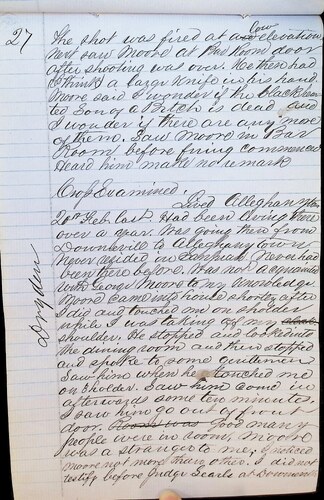 27
The shot was fired at a low elevation
next saw Moore at Bar Room door
after shooting was over. He then had
I think a large Knife in his hand.
Moore said I wonder if the black hearted
Son of a Bitch is dead and
I wonder if there are any more
of them. Saw Moore in Bar
Room before firing commenced
Heard him make no remark
Cross Examined.
Lived Alleghany town
20th Feb. last. Had been living there
over a year. Was going then from
Downieville to Alleghany town
Never resided in Never had
been there before. Was not acquainted
with George Moore to my Knowledge.
Moore came into house shortly after
I did and touched me on sholder
while I was taking off my
shoulder. He stopped and
the dining room and then stopped
and spoke to some gentlemen
Saw him when he touched me
on sholder. Saw him come in
afterwards some ten minutes.
I saw him go out of front
door. Good many
people were in room. Moore
was a stranger to me, I noticed
Moore not more than other. I did not
testify before Judge Searls at Downieville
Dryden